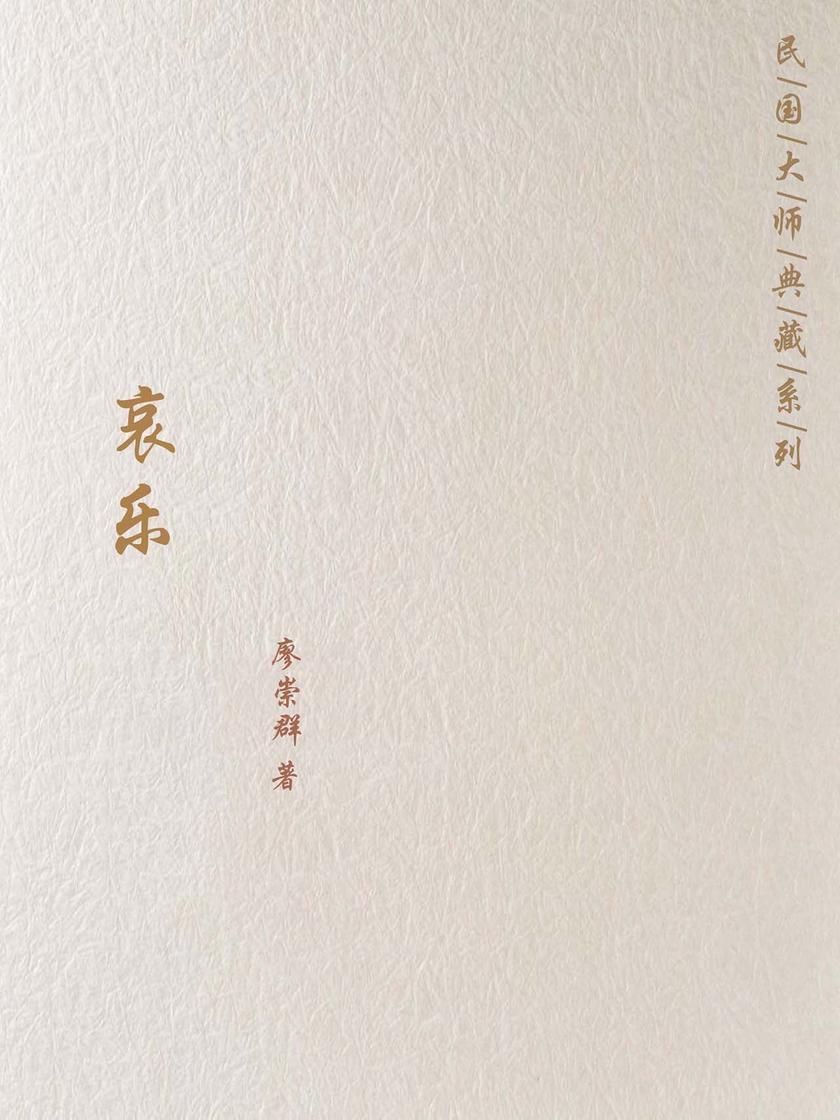 民|国|大|师|典|藏|系|列
哀乐
廖崇群 著